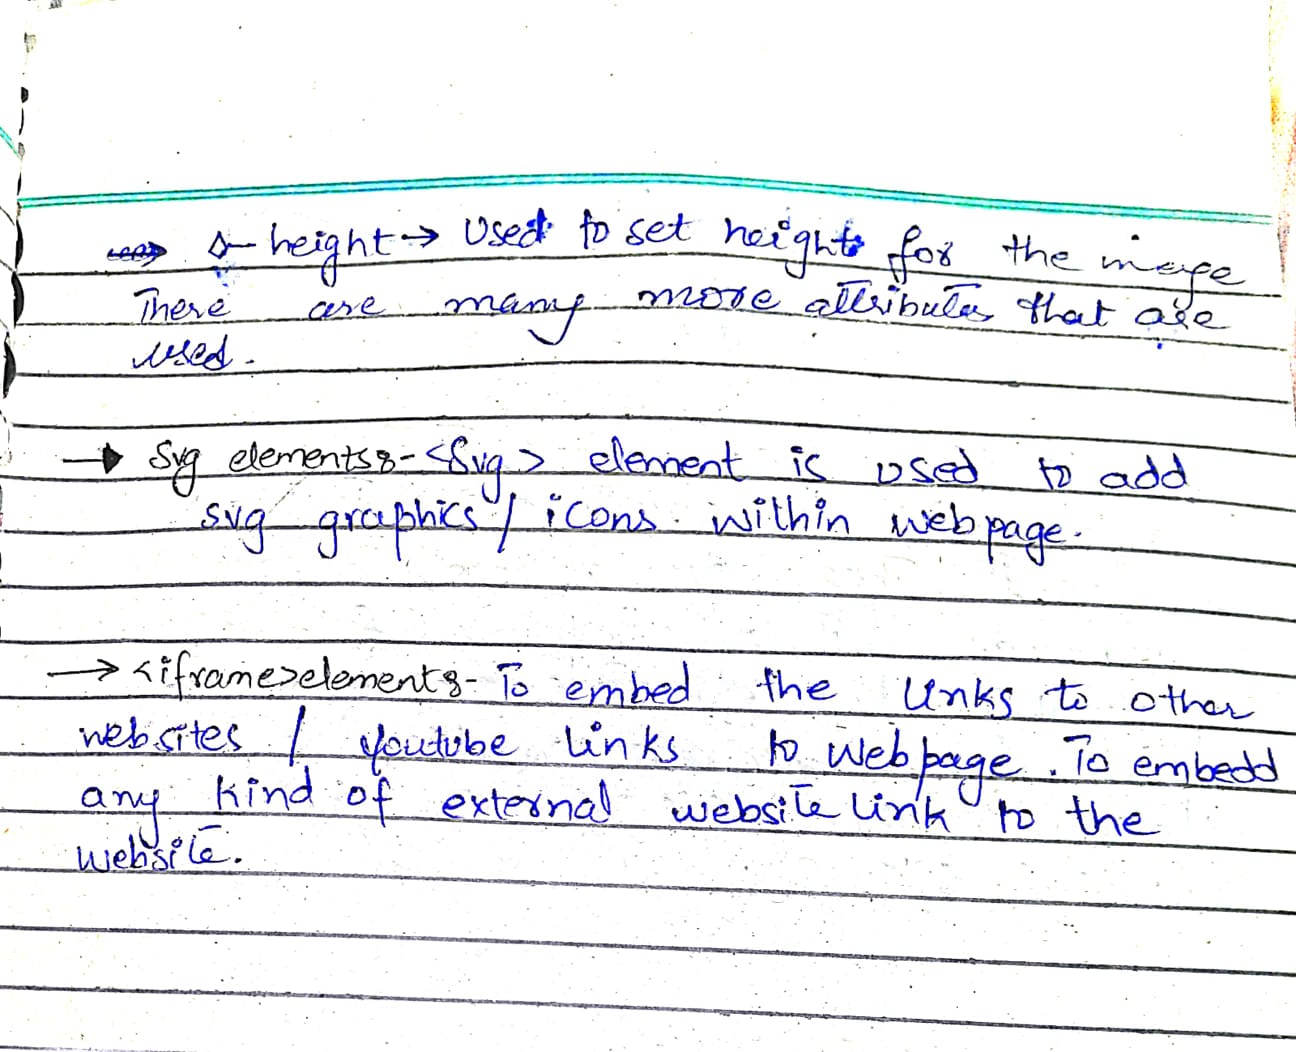 height → Used to set height for the image
There are many more attributes that are
used.
→ Svg elements:- <Svg> element is used to add
svg graphics / icons within webpage.
→ <iframe>element:- To embed the links to other
websites / youtube links to webpage. To embedd
any kind of external website link to the
website.